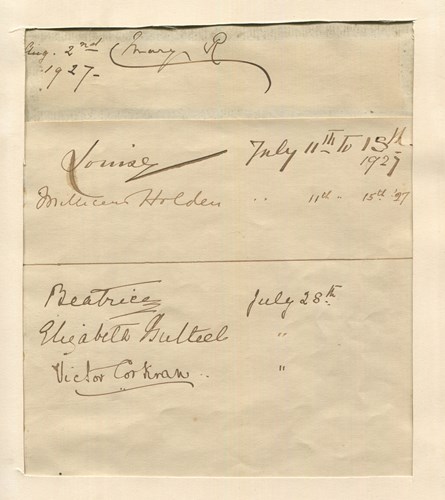 Aug. 2nd Mary R
1927-
Louise July 11th to 15th
1927
Millicent Holden " 11th " 15th '27
Beatrice July 28th
Elizabeth Bulteel "
Victor Corkran "